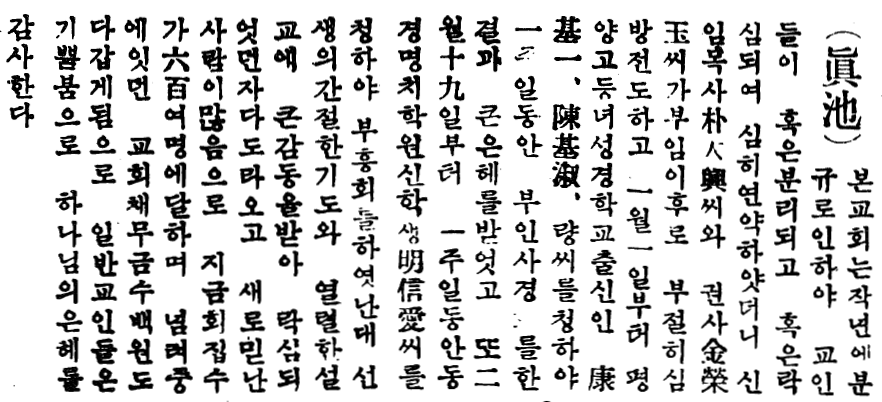 (眞池) 본교회는작년에분
규로인하야 교인
들이 혹은분리되고 혹은락
심되여 심히연약하얏더니 신
임목사朴人興씨와 권사金榮
玉씨가부임이후로 부절히심
방전도하고 一월一일부터 평
양고등녀성경학교출신인 康
基一、陳基淑、량씨를청하야
一주일동안 부인사경 를한
결과 큰은혜를받엇고 또二
월十九일부터 一주일동안동
경명처학원신학생明信愛씨를
청하야 부흥회를하엿난대 선
생의간절한기도와 열렬한설
교애 큰감동을받아 락심되
엇던자다도라오고 새로믿난
사람이많음으로 지금회집수
가六百여명에달하며 념려중
에잇던 교회채무금수백원도
다갑게됨으로 일반교인들은
하나님의은혜를
감사한다